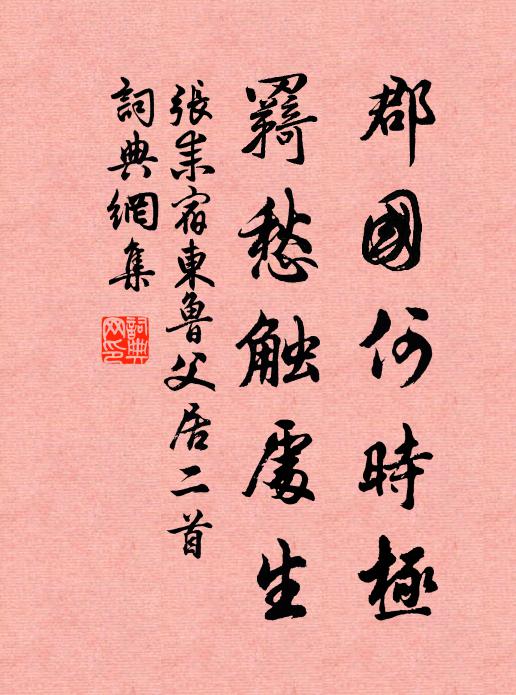 郡國何時極
羇愁触處生
張耒宿東魯父居二首
詞典網集
詞典網印